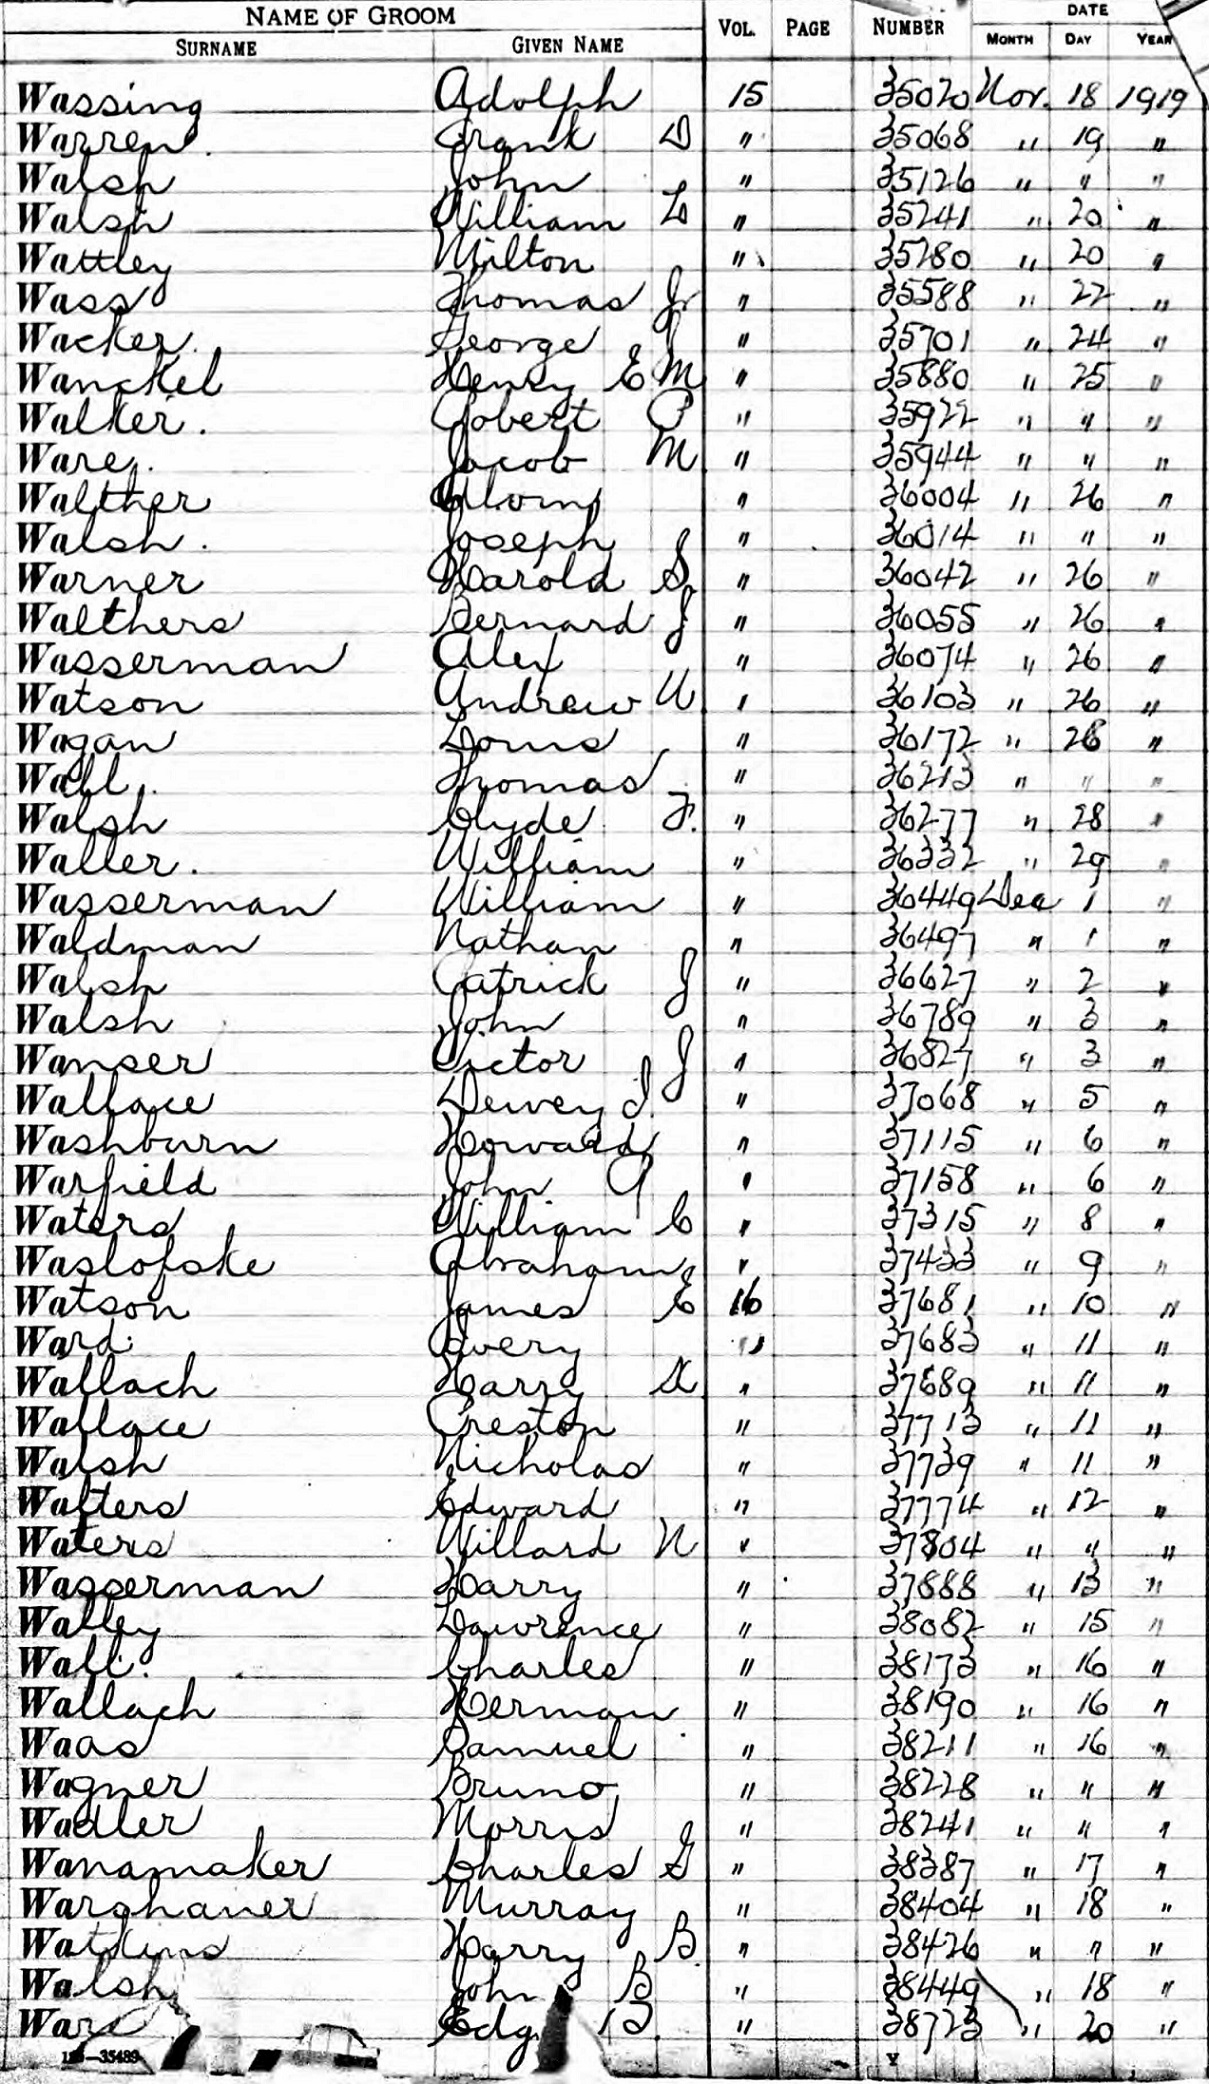 NAME OF GROOM VOL. PAGE NUMBER DATE
SURNAME GIVEN NAME MONTH DAY YEAR
Wassing Adolph 15 35020 Nov. 18 1919
Warren Frank D " 35068 " 19 "
Walsh John " 35126 " " "
Walsh William L " 35241 " 20 "
Wattley Milton " 35280 " 20 "
Wass Thomas Jr " 35588 " 22 "
Wacker George J " 35701 " 24 "
Wanckel Henry E M " 35880 " 25 "
Walker. Robert P " 35922 " " "
Ware. Jacob M " 35944 " " "
Walther " 36004 " 26 "
Walsh. Joseph " 36014 " " "
Warner Harold S. " 36042 " 26 "
Walthers Bernard J " 36055 " 26 "
Wasserman Alex " 36074 " 26 "
Watson Andrew W " 36103 " 26 "
Wagan Louis " 36172 " 28 "
Wall. Thomas " 36213 " " "
Walsh Clyde F. " 36277 " 28 "
Waller. William " 36332 " 29 "
Wasserman William " 36449 Dec 1 "
Waldman Nathan " 36497 " 1 "
Walsh Patrick J " 36627 " 2 "
Walsh John " 36789 " 3 "
Wanser Victor J " 36827 " 3 "
Wallace Dewey I. " 37068 " 5 "
Washburn Howard " 37115 " 6 "
Warfield John A " 37158 " 6 "
Waters William C " 37315 " 8 "
Waslofske Abraham " 37433 " 9 "
Watson James E 16 37681 " 10 "
Ward Avery " 37683 " 11 "
Wallach Harry " 37689 " 11 "
Wallace Preston " 37713 " 11 "
Walsh Nicholas " 37739 " 11 "
Walters Edward " 37774 " 12 "
Waters Willard N " 37804 " " "
Wasserman Harry " 37888 " 13 "
Walley Lawrence " 38082 " 15 "
Wall. Charles " 38173 " 16 "
Wallach Herman " 38190 " 16 "
Waas Samuel " 38211 " 16 "
Wagner Bruno " 38228 " " "
Wadler Morris " 38241 " " "
Wanamaker Charles G " 38387 " 17 "
Warshaner Murray " 38404 " 18 "
Watkins Harry B. " 38426 " " "
Walsh John B " 38449 " 18 "
Ware Edg B. " 38723 " 20 "
—35489